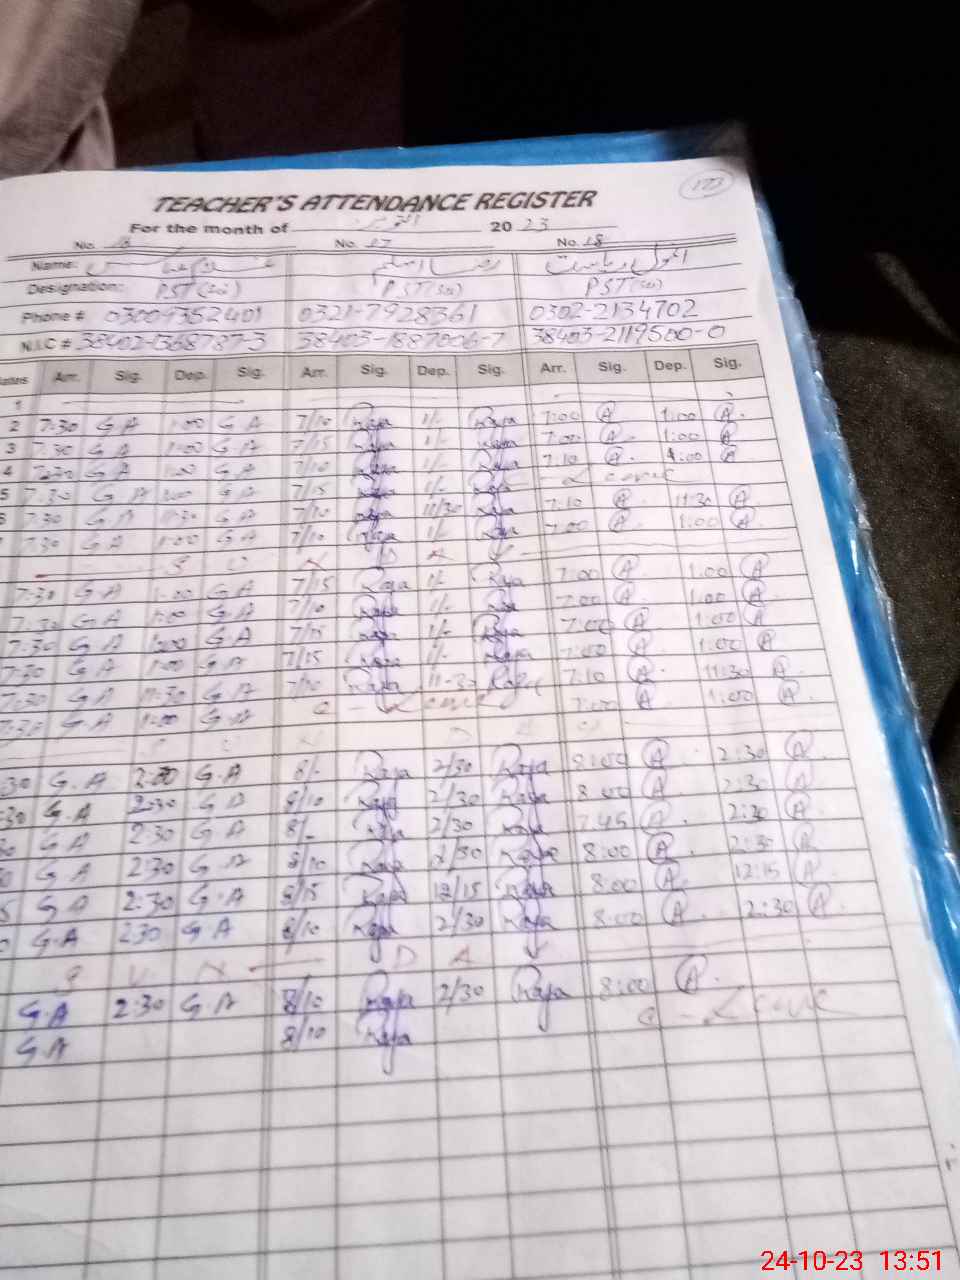 173
TEACHER'S ATTENDANCE REGISTER
For the month of اکتوبر 2023
No. 16 No. 17 No. 18
Name:
Designation: PST(Sci) PST(Sci) PST(Sci)
Phone # 03009352401 0321-7928361 0302-2134702
N.I.C # 38402-1368787-3 38403-1887006-7 38403-2119500-0
Dates Arr. Sig. Dep. Sig. Arr. Sig. Dep. Sig. Arr. Sig. Dep. Sig.
1
2 7:30 G A 1:00 G A 7/10 Raja 1/- Raja 7:00 A 1:00 A
3 7:30 G A 1:00 G A 7/15 Raja 1/- Raja 7:00 A 1:00 A
4 7:30 G A 1:00 G A 7/10 Raja 1/- Raja 7:10 A 1:00 A
5 7:30 G A 1:00 G A 7/15 Raja 1/- Raja Leave
6 7:30 G A 11:30 G A 7/10 Raja 11/30 Raja 7:10 A 11:30 A
7:30 G A 1:00 G A 7/10 Raja 1/- Raja 7:00 A 1:00 A
S U N D A Y
7:30 G A 1:00 G A 7/15 Raja 1/- Raja 7:00 A 1:00 A
7:30 G A 1:00 G A 7/10 Raja 1/- Raja 7:00 A 1:00 A
7:30 G A 1:00 G A 7/15 Raja 1/- Raja 7:00 A 1:00 A
7:30 G A 1:00 G A 7/15 Raja 1/- Raja 7:00 A 1:00 A
7:30 G A 11:30 G A 7/10 Raja 11-30 Raja 7:10 A 11:30 A
7:30 G A 1:00 G A C - Leave 7:00 A 1:00 A
S U N D A
:30 G.A 2:30 G.A 8/- Raja 2/30 Raja 8:00 A 2:30 A
:30 G.A 2:30 G A 8/10 Raja 2/30 Raja 8:00 A 2:30 A
G A 2:30 G A 8/- Raja 2/30 Raja 7:45 A 2:30 A
G A 2:30 G A 8/10 Raja 2/30 Raja 8:00 A 2:30 A
G A 2:30 G.A 8/15 Raja 12/15 Raja 8:00 A 12:15 A
G.A 2:30 G A 8/10 Raja 2/30 Raja 8:00 A 2:30 A
S U N D A Y
G.A 2:30 G A 8/10 Raja 2/30 Raja 8:00 A
G.A 8/10 Raja C - Leave
24-10-23 13:51